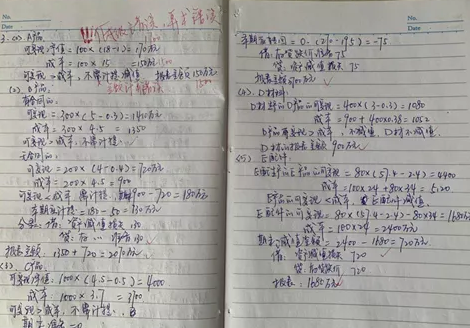 No.
Date
3. (1) A产品
可变现净值 = 100×(18-1) = 1700万元
成本 = 100×15 = 1500万元
可变现 > 成本, 不需计提减值
报表金额150万元
1500
(2). B产品
有合同的:
可变现 = 300×(5-0.3) = 1410万元
成本 = 300×4.5 = 1350
可变现 > 成本, 不需计提.
无合同的:
可变现 = 200×(4-0.4) = 720万元
成本 = 200×4.5 = 900
可变现 < 成本 需计提. 900-720 = 180万元
本期应计提 = 180-50 = 130万元
分录: 借: 资产减值损失 130
贷: 存… 130
报表金额 1350+720 = 2070万元
(3). C产品
可变现净值: 1000×(4.5-0.5) = 4000
成本 1000×3.7 = 3700
可变现 > 成本, 不需计提.
No.
Date
本期应转回 = 0-(270-195) = -75
借: 存货跌价准备 75
贷: 资产减值损失 75
报表3700万元
(4). D材料
D材料的D产品的可变现 = 400×(3-0.3) = 1080
成本 = 900+400×0.38 = 1052
D产品可变现 > 成本, 不减值. D材不减值.
D材的报表金额 900万元
(5) E配件
E配件的E产品的可变现 = 80×(57.4-2.4) = 4400
成本 = 100×24+80×34 = 5120
E产品的可变现 < 成本 E配件减值
E配件的可变现 = 80×(57.4-2.4)-80×34 = 1680万元
成本 = 100×24 = 2400万元
期末减值金额 = 2400-1680 = 720万元
借: 资产减值损失 720
贷: 存货跌价 720
报表: 1680万元